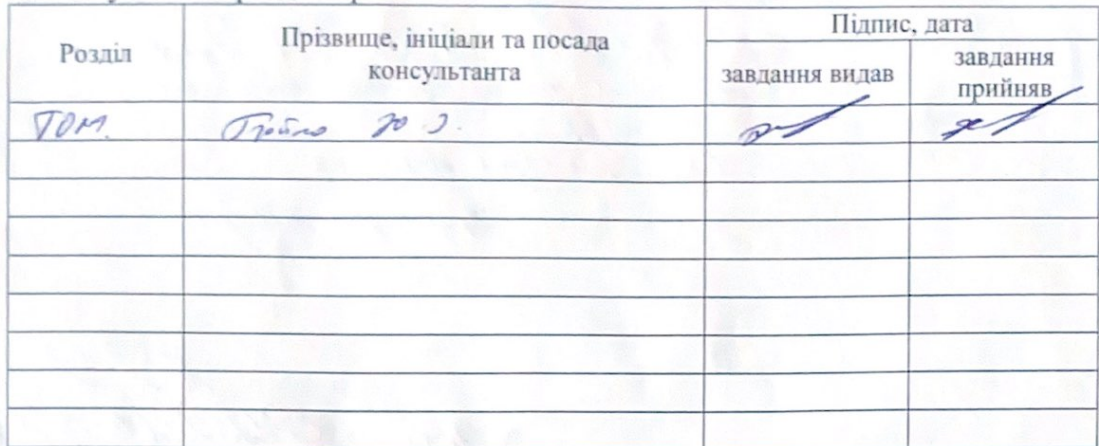 Розділ
Прізвище, ініціали та посада
консультанта
Підпис, дата
завдання видав
завдання
прийняв
ТОМ.